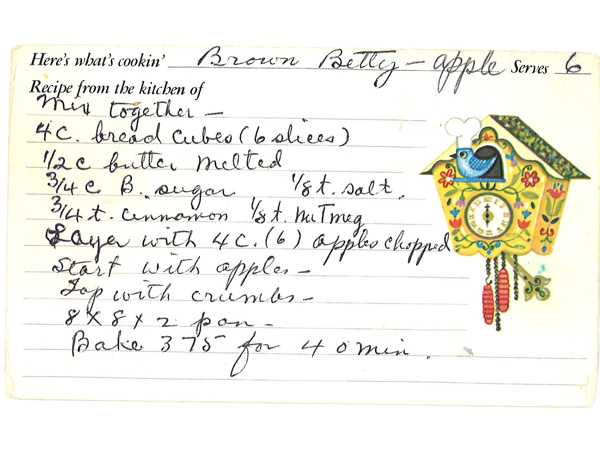 Here's what's cookin' Brown Betty - apple Serves 6
Recipe from the kitchen of
Mix together -
4 c. bread cubes (6 slices)
1/2 c butter melted
3/4 c B. sugar 1/8 t. salt.
3/4 t. cinnamon 1/8 t. nutmeg
Layer with 4 c. (6) apples chopped
Start with apples -
Top with crumbs -
8 x 8 x 2 pan -
Bake 375 for 40 min.